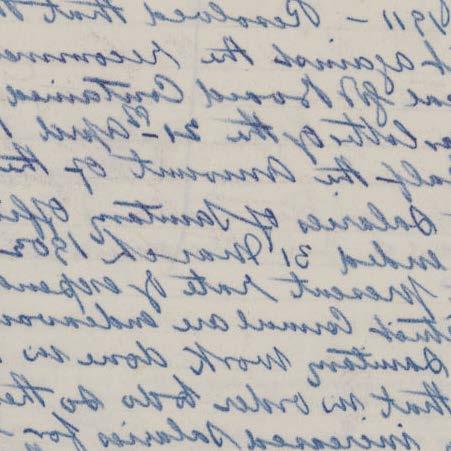 1911 – Resolved that
against the recomme
Govt Board contained
letter of the 21st April
half the amount of the
Salaries of Sanitary Offi
ended 31 March 1902
present rate of expen
Council are endeavou
Sanitary work done in
that in order to do so the
increased Salaries for